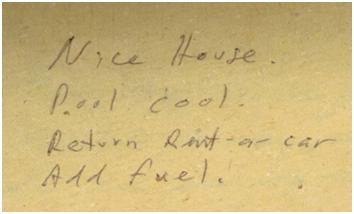 Nice House.
Pool cool.
Return Rent-a-car
Add fuel.